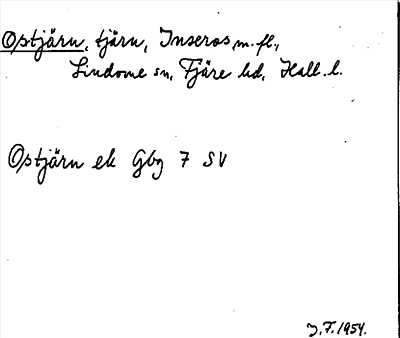 Ostjärn, tjärn, Inseros, m. fl.,
Lindome sn, Fjäre hd, Hall. l.
Ostjärn ek Gbg 7 SV
J. F. 1954.